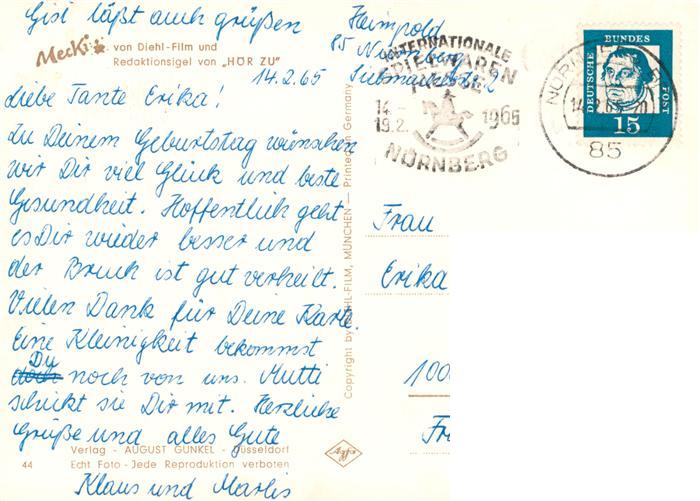 Gisl läßt auch grüßen
Mecki
von Diehl-Film und
Redaktionsigel von „HÖR ZU"
14.2.65
Liebe Tante Erika!
Zu Deinem Geburtstag wünschen
wir Dir viel Glück und beste
Gesundheit. Hoffentlich geht
es Dir wieder besser und
der Bruch ist gut verheilt.
Vielen Dank für Deine Karte.
Eine Kleinigkeit bekommst
Du
doch noch von uns. Mutti
schickt sie Dir mit. Herzliche
Grüße und alles Gute
Verlag - AUGUST GUNKEL - Düsseldorf
44 Echt Foto - Jede Reproduktion verboten
Klaus und Marlis
Copyright by DIEHL-FILM, MÜNCHEN — Printed in Germany
Heimpold
85 Nürnberg
INTERNATIONALE
SPIELWAREN
MESSE
14.-
19.2.
1965
NÜRNBERG
NÜRNBERG
85
DEUTSCHE BUNDESPOST
15
Frau
Erika
1000
Agfa